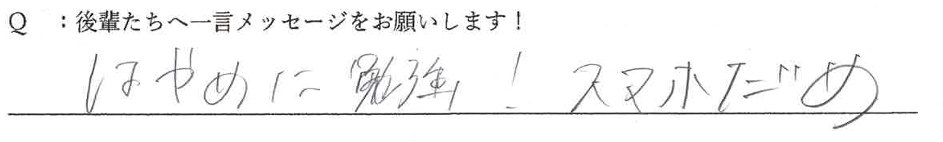 Q ：後輩たちへ一言メッセージをお願いします！
はやめに勉強！スマホだめ